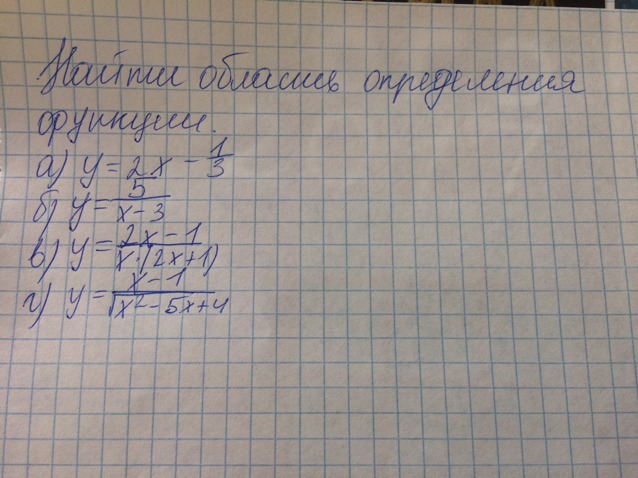 Найти область определения
функции.
а) y = 2x - 1/3
б) y = 5/(x-3)
в) y = (2x-1)/(x·(2x+1))
г) y = (x-1)/√(x²-5x+4)